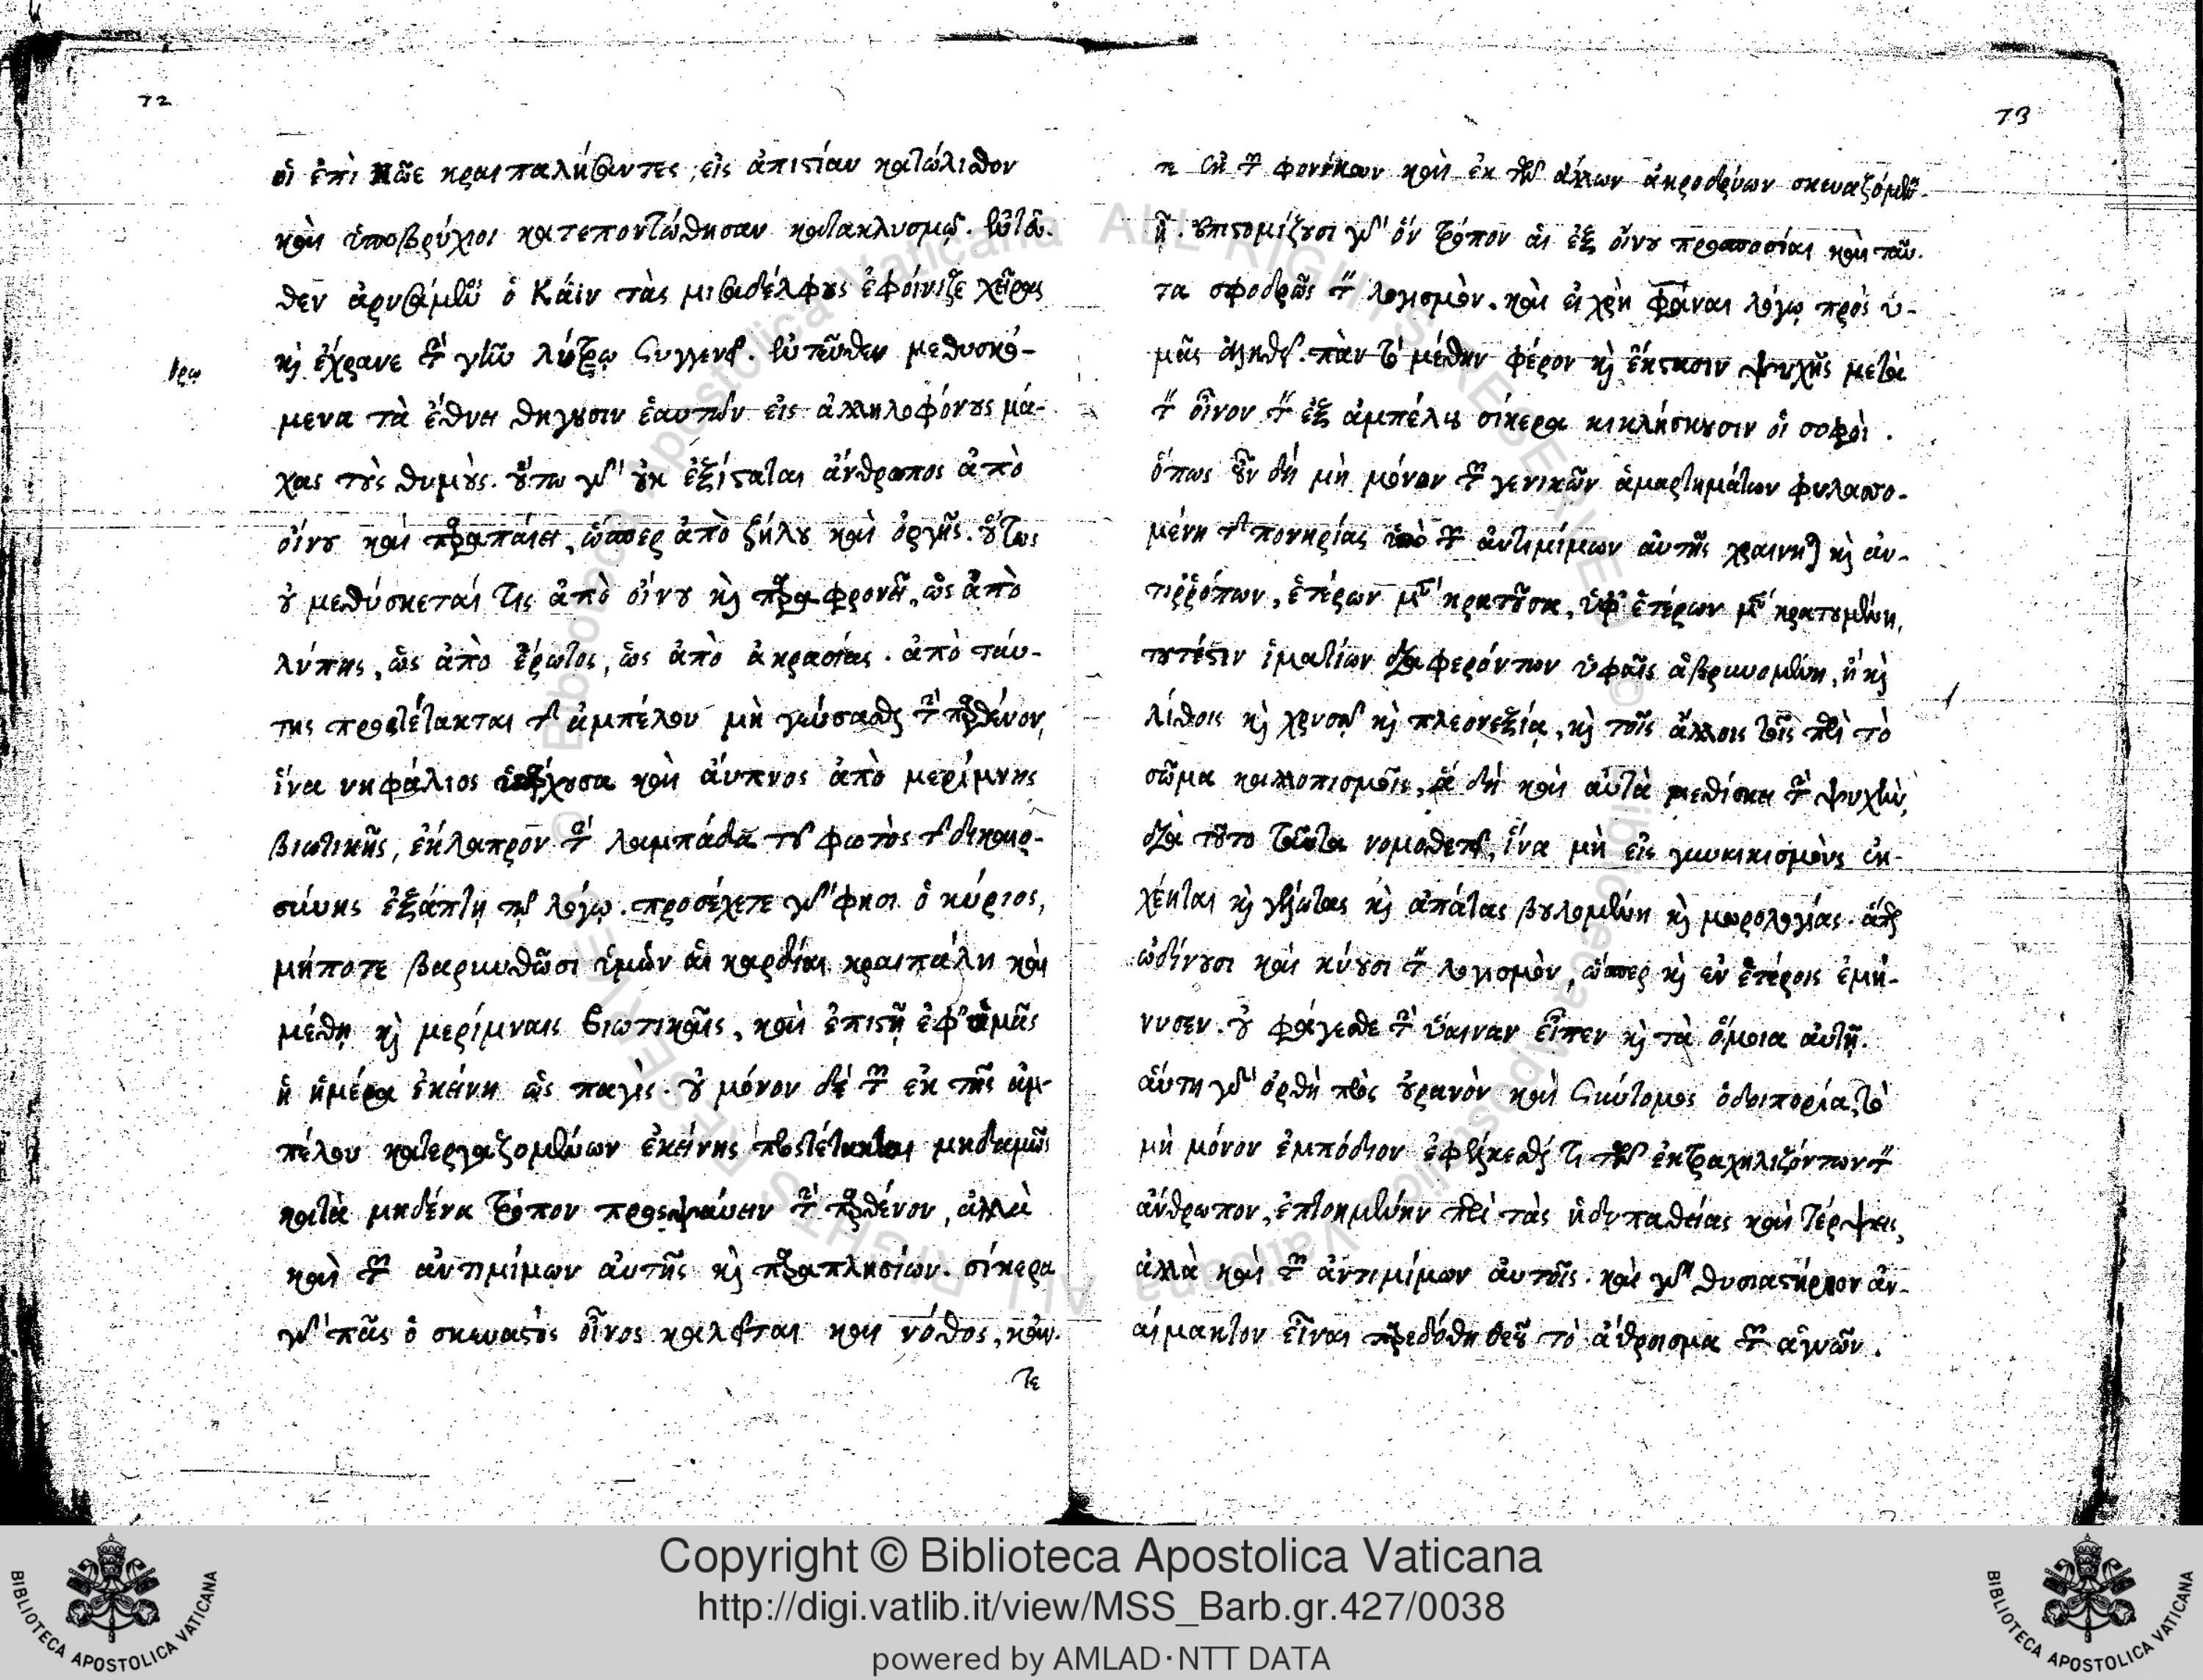 72
οἱ ἐπὶ Νῶε κραιπαλήσαντες, εἰς ἀπιστίαν κατώλισθον
καὶ ὑποβρύχιοι κατεποντώθησαν κατακλυσμῷ. ἐντεῦ-
θεν ἀρυσάμενος ὁ Κάϊν τὰς μισαδέλφους ἐφοίνιξε χεῖρας
καὶ ἔχρανε τὴν γῆν λύθρῳ συγγενεῖ. ἐντεῦθεν μεθυσκό-
μενα τὰ ἔθνη θήγουσιν ἑαυτῶν εἰς ἀλληλοφόνους μά-
χας τοὺς θυμούς. οὕτω γὰρ οὐκ ἐξίσταται ἄνθρωπος ἀπὸ
οἴνου καὶ παραπαίει, ὥσπερ ἀπὸ ζήλου καὶ ὀργῆς. οὕτως
οὐ μεθύσκεταί τις ἀπὸ οἴνου καὶ παραφρονεῖ, ὡς ἀπὸ
λύπης, ὡς ἀπὸ ἔρωτος, ὡς ἀπὸ ἀκρασίας. ἀπὸ ταύ-
της προστέτακται τῆς ἀμπέλου μὴ γεύσασθαι τὴν παρθένον,
ἵνα νηφάλιος ὑπάρχουσα καὶ ἄυπνος ἀπὸ μερίμνης
βιωτικῆς, ἔκλαπρον τὴν λαμπάδα τοῦ φωτὸς τῆς δικαιο-
σύνης ἐξάπτῃ τῷ λόγῳ. προσέχετε γὰρ φησι ὁ κύριος,
μήποτε βαρυνθῶσι ὑμῶν αἱ καρδίαι κραιπάλῃ καὶ
μέθῃ καὶ μερίμναις βιωτικαῖς, καὶ ἐπιστῇ ἐφ' ὑμᾶς
ἡ ἡμέρα ἐκείνη ὡς παγίς. οὐ μόνον δὲ τῶν ἐκ τῆς ἀμ-
πέλου κατεργαζομένων ἐκείνης προστέτακται μηδαμῶς
κατὰ μηδένα τρόπον προσψαύειν τὴν παρθένον, ἀλλὰ
καὶ τῶν ἀντιμίμων αὐτῆς καὶ παραπλησίων. σίκερα
γὰρ πᾶς ὁ σκευαστὸς οἶνος καλεῖται καὶ νόθος, κἄν-
τε
73
τε ἐκ τῶν φοινίκων καὶ ἐκ τῶν ἄλλων ἀκροδρύων σκευαζόμενος
ᾖ. ἐπιστομίζουσι γὰρ ὃν τρόπον αἱ ἐξ οἴνου προποσίαι καὶ ταῦ-
τα σφοδρῶς τὸν λογισμόν. καὶ εἰ χρὴ φάναι λόγῳ πρὸς ὑ-
μᾶς ἀληθεῖ. πᾶν τὸ μέθην φέρον καὶ ἔκστασιν ψυχῆς μετὰ
τὸν οἶνον τὸν ἐξ ἀμπέλου σίκερα κικλήσκουσιν οἱ σοφοί.
ὅπως οὖν δὴ μὴ μόνον τῶν γενικῶν ἁμαρτημάτων φυλασσο-
μένη τῆς πονηρίας ὑπὸ τῶν ἀντιμίμων αὐτῆς χραίνηται καὶ ἀν-
τιρρόπων, ἑτέρων μὲν κρατοῦσα, ὑφ' ἑτέρων μὲν κρατουμένη,
τουτέστιν ἱματίων διαφερόντων ὑφαῖς ἁβρυνομένη, ἢ καὶ
λίθοις καὶ χρυσῷ καὶ πλεονεξίᾳ, καὶ τοῖς ἄλλοις τοῖς περὶ τὸ
σῶμα καλλοπισμοῖς, ἃ δὴ καὶ αὐτὰ μεθύσκει τὴν ψυχὴν,
διὰ τοῦτο ταῦτα νομοθετεῖ, ἵνα μὴ εἰς γυναικισμοὺς ἐκ-
χέηται καὶ γέλωτας καὶ ἀπάτας βουλομένη καὶ μωρολογίας. ἅπερ
ὠδίνουσι καὶ κύουσι τὸν λογισμὸν, ὥσπερ καὶ ἐν ἑτέροις ἐμή-
νυσεν. οὐ φάγεσθε τὴν ὕαιναν εἶπεν καὶ τὰ ὅμοια αὐτῇ.
αὕτη γὰρ ὀρθὴ πρὸς οὐρανὸν καὶ σύντομος ὁδοιπορία, τὸ
μὴ μόνον ἐμπόδιον ἐφέλκεσθαί τι τῶν ἐκτραχηλιζόντων τὸν
ἄνθρωπον, ἐπτοημένην περὶ τὰς ἡδυπαθείας καὶ τέρψεις,
ἀλλὰ καὶ τῶν ἀντιμίμων αὐτοῖς. καὶ γὰρ θυσιαστήριον ἀν-
αίμακτον εἶναι παρεδόθη θεοῦ τὸ ἄθροισμα τῶν ἁγνῶν.
Copyright © Biblioteca Apostolica Vaticana
http://digi.vatlib.it/view/MSS_Barb.gr.427/0038
powered by AMLAD·NTT DATA
BIBLIOTECA APOSTOLICA VATICANA
BIBLIOTECA APOSTOLICA VATICANA